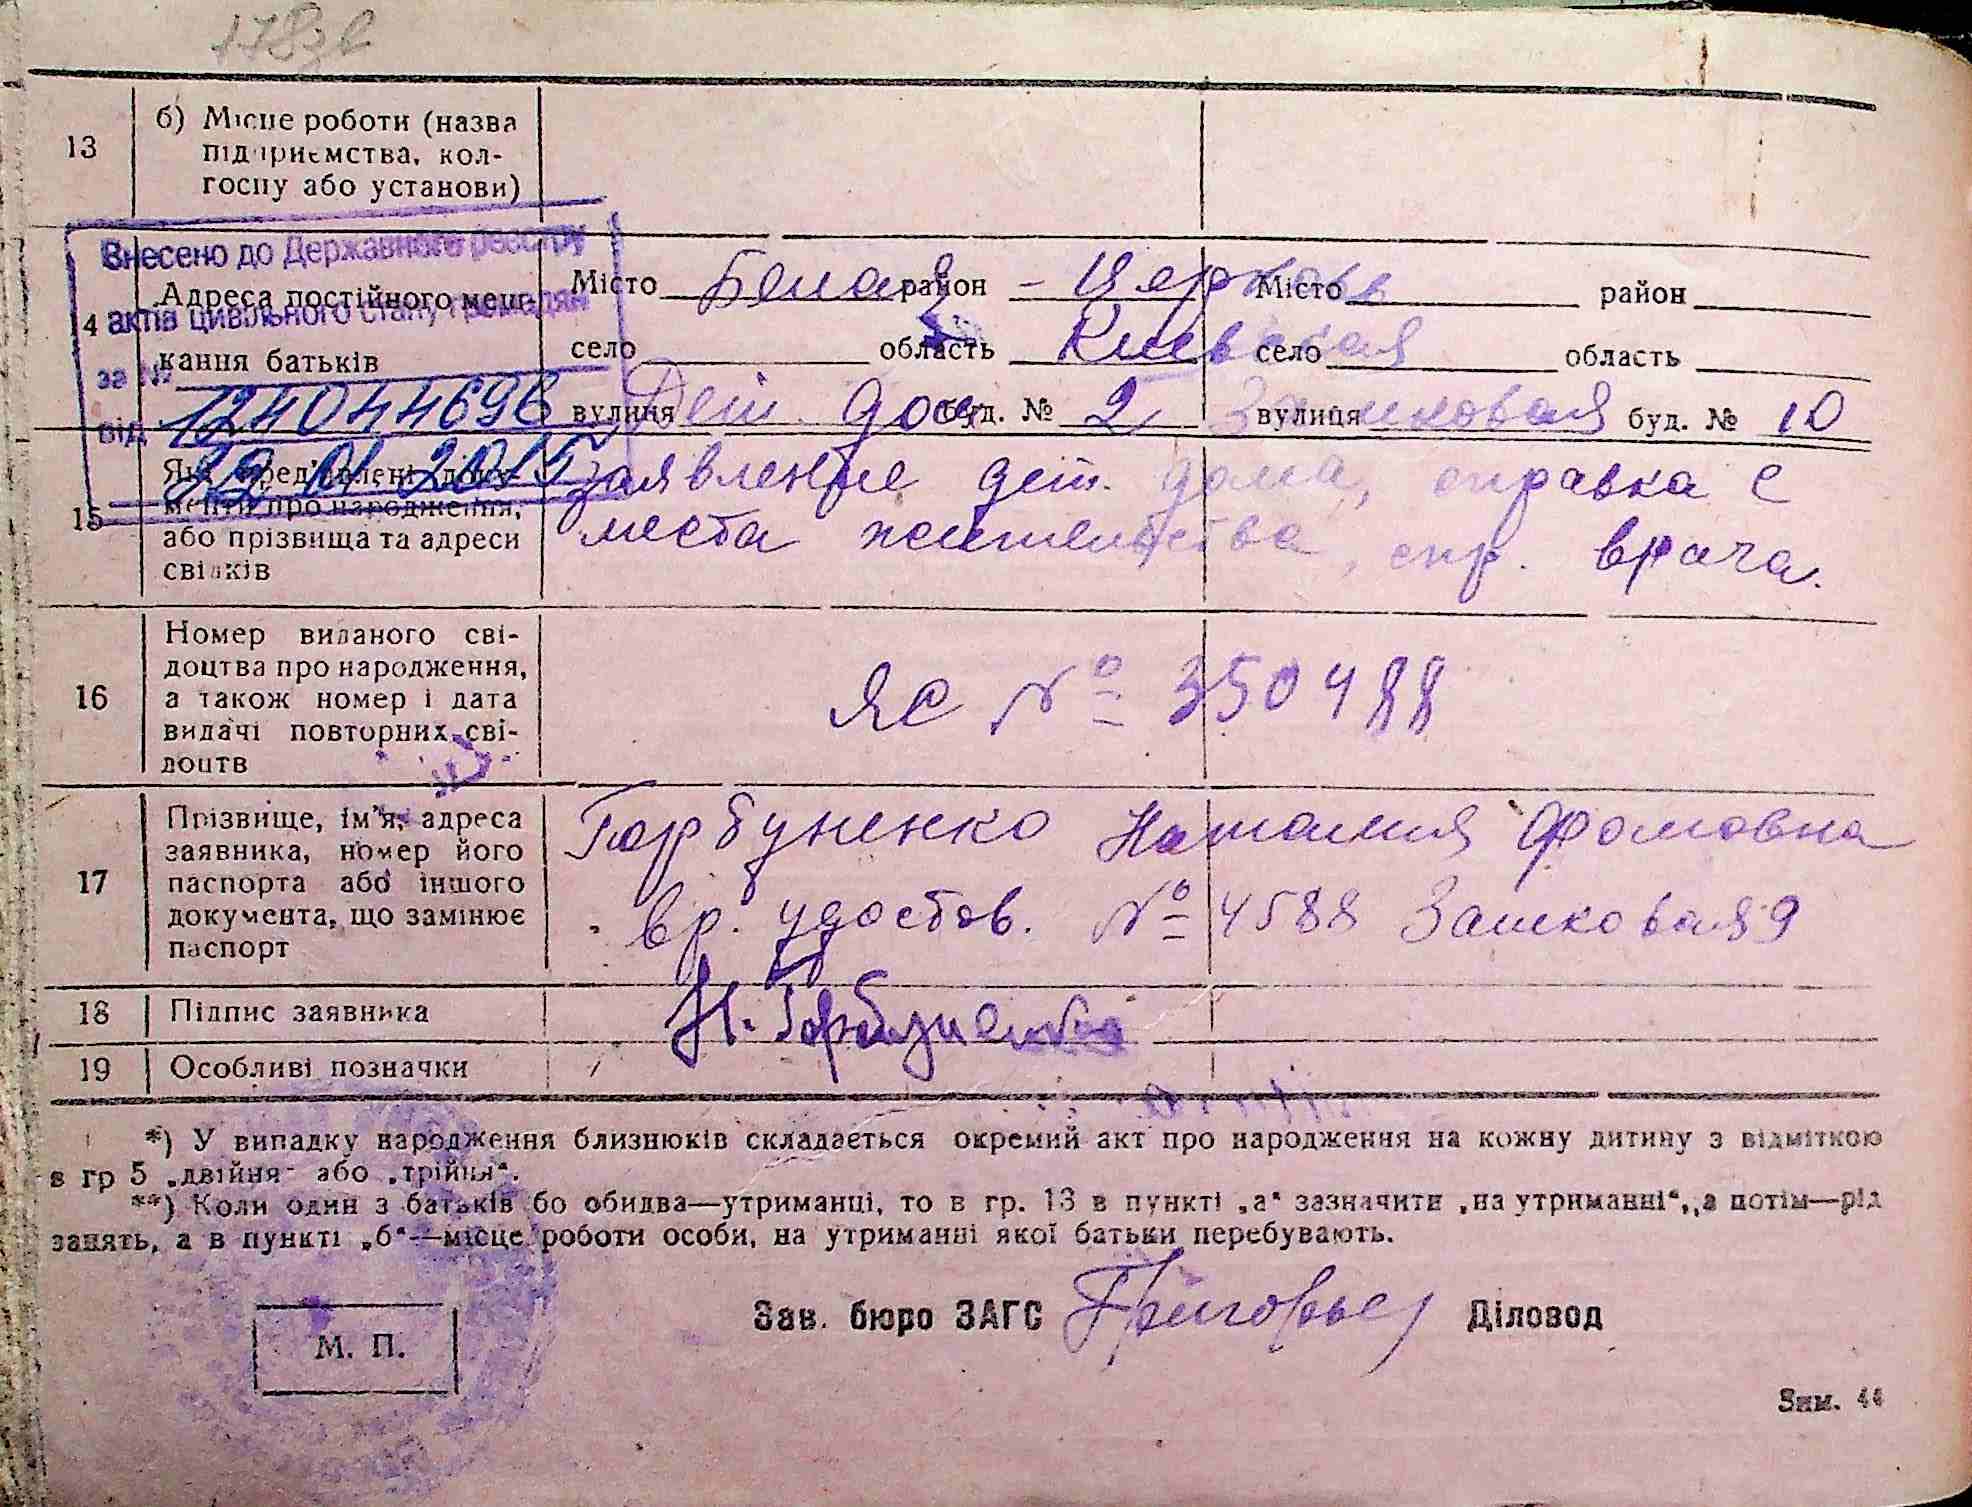 178зв
13 б) Місце роботи (назва підприємства, колгоспу або установи)
Внесено до Державного реєстру
актів цивільного стану громадян
за № 124044696
від 22 01 2015
14 Адреса постійного мешкання батьків
Місто Белая район - Церковь Місто район
село область Киевская село область
вулиця Дет. дом буд. № 2 Замковая вулиця буд. № 10
15 Які пред'явлені документи про народження, або прізвища та адреси свідків
заявление дет. дома, справка с
места жительства, спр. врача.
16 Номер виданого свідоцтва про народження, а також номер і дата видачі повторних свідоцтв
ЯС № 350488
17 Прізвище, ім'я, адреса заявника, номер його паспорта або іншого документа, що замінює паспорт
Горбуненко Наталия Фомовна
вр. удостов. № 4588 Замковая 9
18 Підпис заявника
Н. Горбуненко
19 Особливі позначки
*) У випадку народження близнюків складається окремий акт про народження на кожну дитину з відміткою
в гр 5 „двійня" або „трійня".
**) Коли один з батьків бо обидва—утриманці, то в гр. 13 в пункті „а" зазначити „на утриманні", а потім—рід
занять, а в пункті „б"—місце роботи особи, на утриманні якої батьки перебувають.
Зав. бюро ЗАГС Григорьев Діловод
М. П.
Зам. 44